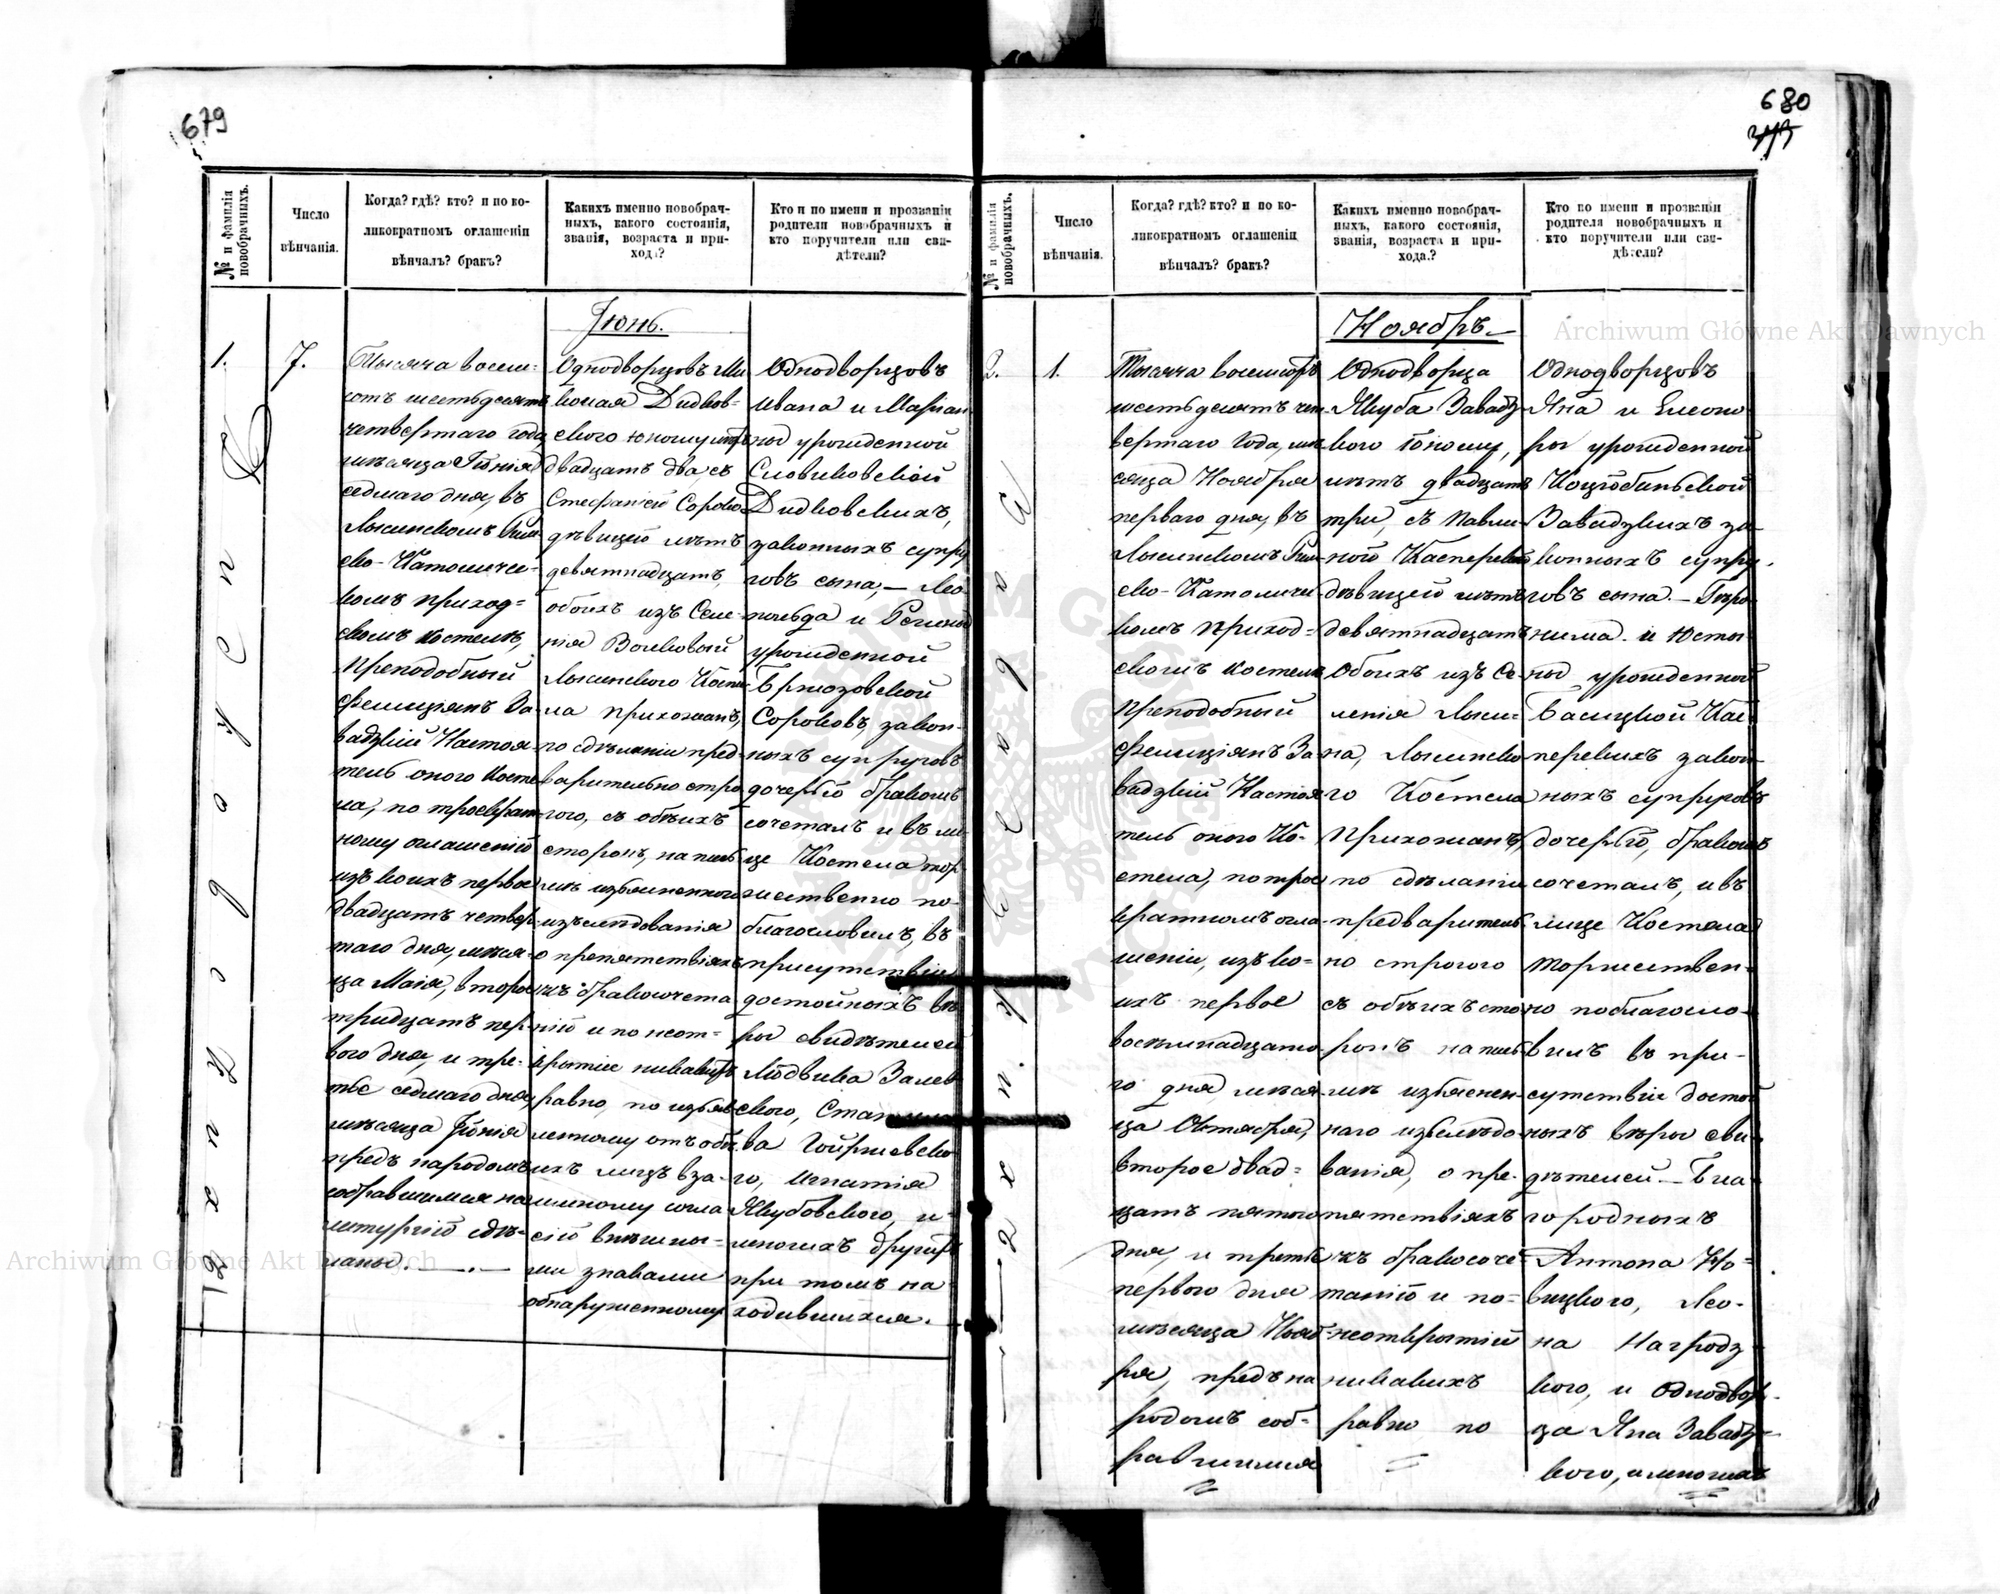 679
№ и фамилія новобрачныхъ.
Число вѣнчанія.
Когда? гдѣ? кто? и по ко-
ликократномъ оглашеніи
вѣнчалъ? бракъ?
Какихъ именно новобрач-
ныхъ, какого состоянія,
званія, возраста и при-
хода?
Кто и по имени и прозванію
родители новобрачныхъ и
кто поручители или сви-
дѣтели?
Іюнь.
1.
7.
Тысяча восем-
сотъ шестьдесятъ
четвертаго года
мѣсяца Іюнія
седмаго дня, въ
Лысинскомъ Рим-
ско-Католичес-
комъ приход-
скомъ костелѣ,
Преподобный
Фелиціянъ За-
вадзкій Настоя-
тель оного Косте-
ла, по троекрат-
ному оглашенію
изъ коихъ первое
двадцать четвер-
таго дня, мѣся-
ца Маія, второе
тридцать пер-
вого дня, и тре-
тье седмаго дня,
мѣсяца Іюнія
предъ народомъ
собравшимся на
литургію сдѣ-
ланы.
Однодворцовъ Ми-
колая Дидков-
ского юношу лѣтъ
двадцать два, съ
Стефаніей Сороко
дѣвицею лѣтъ
девятнадцать,
обоихъ изъ Селе-
нія Волковый
Лысинского Косте-
ла прихожанъ,
по сдѣланіи пред-
варительно стро-
гого, съ обѣихъ
сторонъ, на пись-
мѣ избясненного
изъслѣдованія
о препятствіяхъ
къ бракосочета-
нію и по неот-
крытіи никакихъ
равно, по избяв-
ленному отъ обѣ-
ихъ лицъ вза-
имному согла-
сію внѣшны-
ми знаками
обнаруженному
Однодворцовъ
Ивана и Маріан-
ны урожденной
Словиковскіой
Дидковскихъ,
законныхъ супру-
говъ сына, — Лео-
польда и Регины
урожденной
Бржозовской
Сороковъ, закон-
ныхъ супруговъ
дочерью бракомъ
сочеталъ и въ ли-
це Костела тор-
жественно по-
благословилъ, въ
присутствіи
достойныхъ вѣ-
ры свидѣтелей
Людвика Залев-
ского,
ва
го, Игнатія
Якубовского, и
многихъ другихъ
при томъ на-
ходившихся.
680
№ и фамилія новобрачныхъ.
Число вѣнчанія.
Когда? гдѣ? кто? и по ко-
ликократномъ оглашеніи
вѣнчалъ? бракъ?
Какихъ именно новобрач-
ныхъ, какого состоянія,
званія, возраста и при-
хода?
Кто по имени и прозванію
родители новобрачныхъ и
кто поручители или сви-
дѣтели?
Ноябрь.
2.
1.
Тысяча восемсотъ
шестьдесятъ чет-
вертаго Года, мѣ-
сяца Ноября
перваго дня, въ
Лысинскомъ Рим-
ско-Католичес-
комъ приход-
скомъ костелѣ
Преподобный
Фелиціянъ За-
вадзкій Настоя-
тель оного Ко-
стела, по трое-
кратномъ огла-
шеніи, изъ ко-
ихъ первое
восемнадцато-
го дня мѣся-
ца Октября,
второе двад-
цать пятого
дня, и третье
первого дня
мѣсяца Нояб-
ря, предъ на-
родомъ соб-
равшимся
Однодворца
Якуба Завадз-
кого юношу,
лѣтъ двадцать
три, съ Павли-
ною Касперскою
дѣвицею лѣтъ
девятнадцать
обоихъ изъ Се-
ленія Лыси-
на, Лысинско-
го Костела
Прихожанъ,
по сдѣланіи
предваритель-
но строгого
съ обѣихъ сто-
ронъ на пись-
мѣ избяснен-
наго избслѣдо-
ванія, о пре-
пятствіяхъ
къ бракосоче-
танію и по-
неоткрытій
никакихъ
равно по
Однодворцовъ
Яна и Елеоно-
ры урожденной
Коцюбиньской
Завадзкихъ за-
конныхъ супру-
говъ сына. — Гіеро-
нима и Юсты-
ны урожденной
Балицкой Кас-
перскихъ закон-
ныхъ супруговъ
дочерью, бракомъ
сочеталъ, и въ
лице Костела
торжествен-
но поблагосло-
вилъ въ при-
сутствіи достой-
ныхъ вѣры сви-
дѣтелей. — Бла-
городныхъ
Антона Но-
вицкого, Лео-
на Нагродз-
кого, и Однодвор-
ца Яна Завадз-
кого, и многихъ
Archiwum Główne Akt Dawnych
Archiwum Główne Akt Dawnych